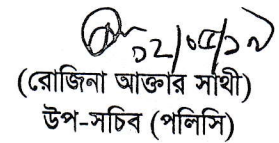 ১২/০৫/১৯
(রোজিনা আক্তার সাথী)
উপ-সচিব (পলিসি)